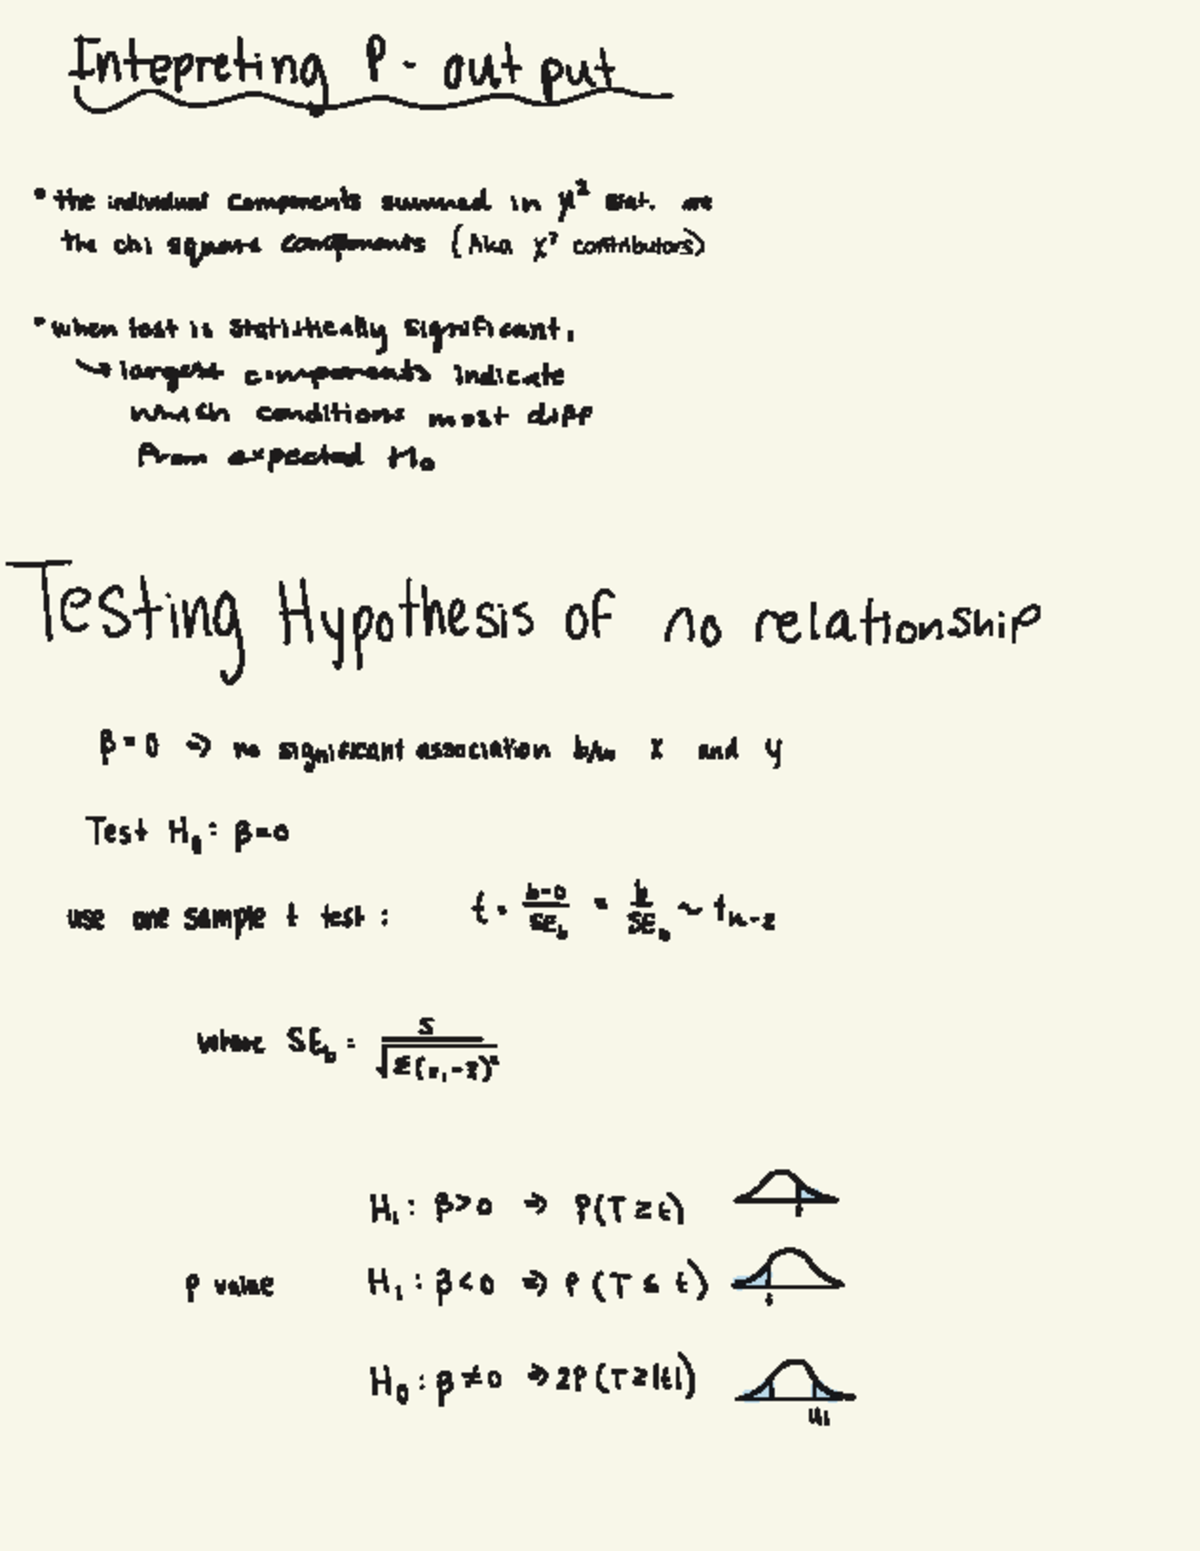 Intepreting P - output
• the individual components summed in χ² stat. are
the chi square components (Aka χ² contributors)
• when test is statistically significant,
↳ largest components indicate
which conditions most diff
from expected H₀
Testing Hypothesis of no relationship
β = 0 ⇒ no significant association b/w x and y
Test H₀ : β = 0
use one sample t test : t = (b-0)/SE_b = b/SE_b ~ t_{n-2}
where SE_b = s/√Σ(x₁-x̄)²
H₁ : β > 0 ⇒ P(T ≥ t) t
p value H₁ : β < 0 ⇒ P(T ≤ t) t
H₀ : β ≠ 0 ⇒ 2P(T ≥ |t|)